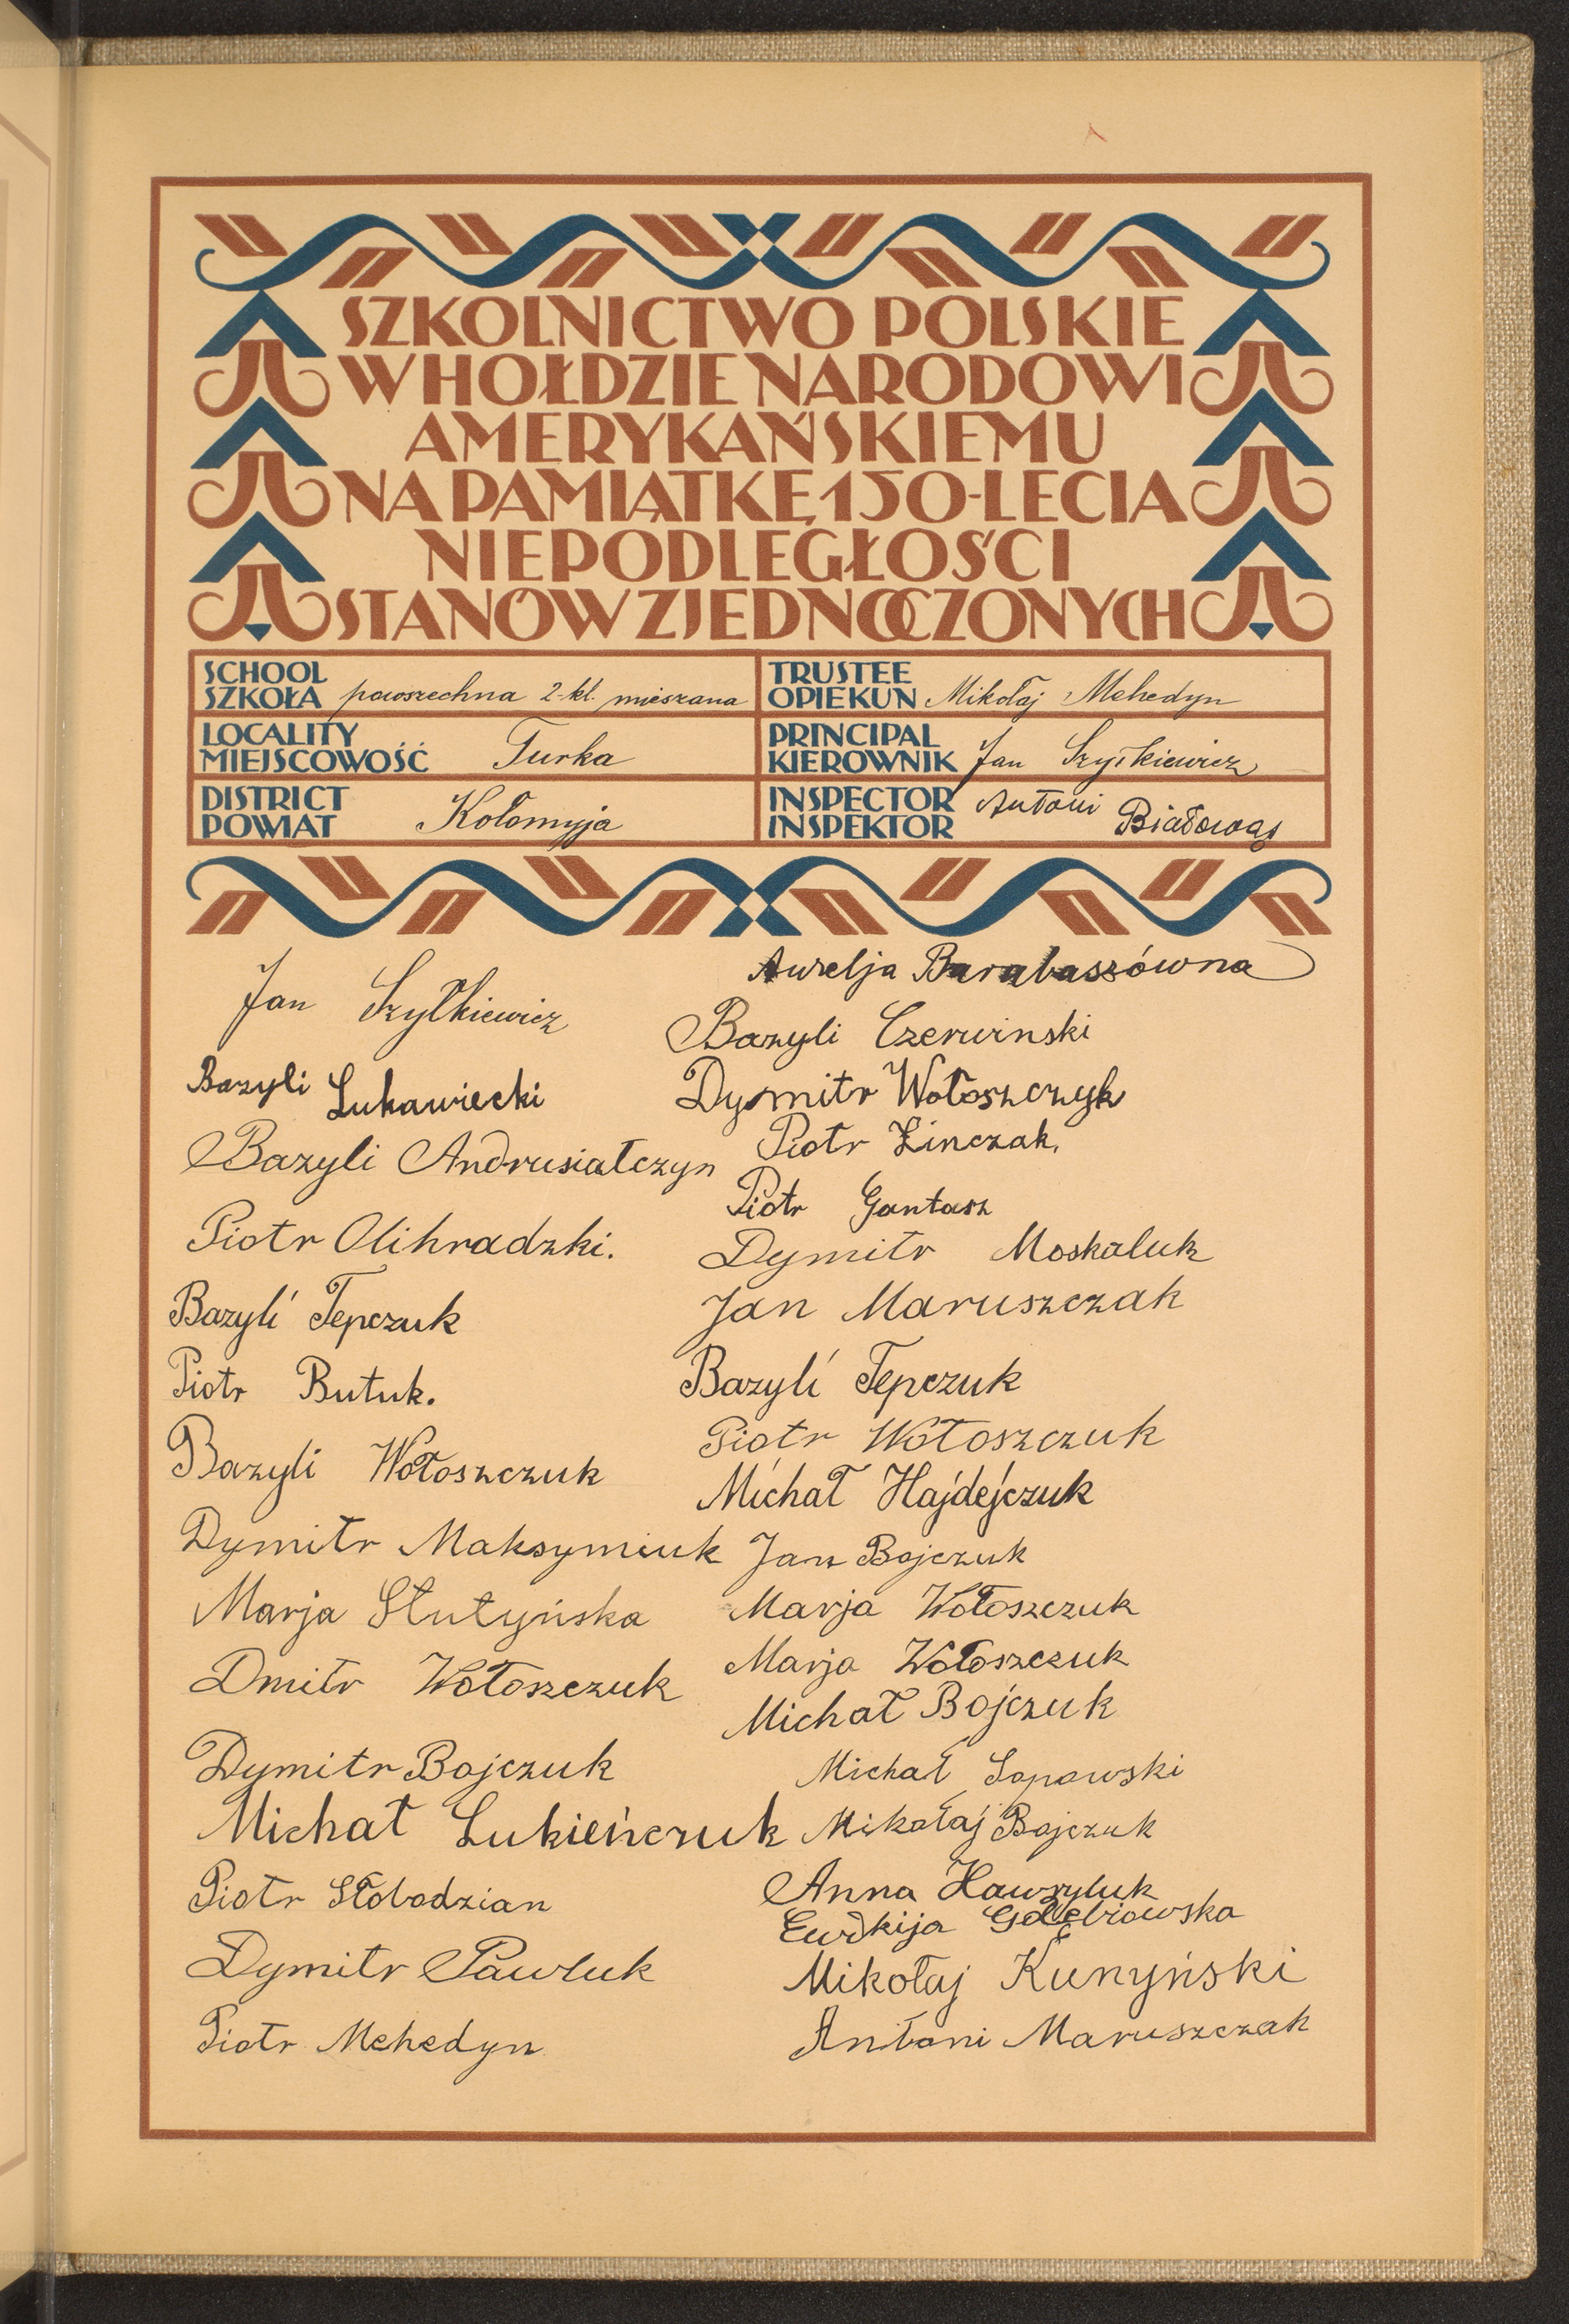 SZKOLNICTWO POLSKIE
W HOŁDZIE NARODOWI
AMERYKAŃSKIEMU
NA PAMIĄTKĘ 150-LECIA
NIEPODLEGŁOŚCI
STANÓW ZJEDNOCZONYCH
SCHOOL
SZKOŁA powszechna 2-kl. mieszana
TRUSTEE
OPIEKUN Mikołaj Mehedyn
LOCALITY
MIEJSCOWOŚĆ Turka
PRINCIPAL
KIEROWNIK Jan Szyłkiewicz
DISTRICT
POWIAT Kołomyja
INSPECTOR
INSPEKTOR Antoni Białowąs
Jan Szyłkiewicz
Bazyli Łukawiecki
Bazyli Andrusiatczyn
Piotr Olihradzki.
Bazyli Tepczuk
Piotr Butuk.
Bazyli Wołoszczuk
Dymitr Maksymiuk
Marja Słutyńska
Dmitr Wołoszczuk
Dymitr Bojczuk
Michał Lukieńczuk
Piotr Słobodzian
Dymitr Pawluk
Piotr Mehedyn
Aurelja Barabaszówna
Bazyli Czerwinski
Dymitr Wołoszczyk
Piotr Linczak.
Piotr Gantasz
Dymitr Moskaluk
Jan Maruszczak
Bazyli Tepczuk
Piotr Wołoszczuk
Michał Hajdejczuk
Jan Bojczuk
Marja Wołoszczuk
Marja Wołoszczuk
Michał Bojczuk
Michał Sopowski
Mikołaj Bojczuk
Anna Hawryluk
Ewdkija Gołębiowska
Mikołaj Kunyński
Antoni Maruszczak